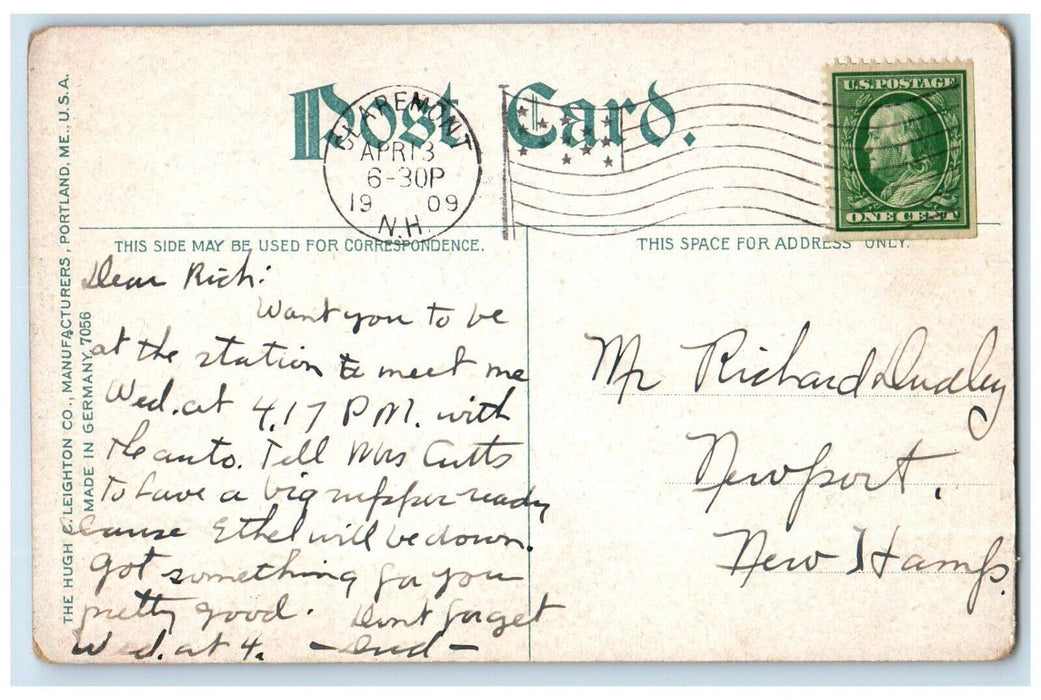 Post Card.
CLAREMONT
APR 13
6-30P
19 09
N.H.
U.S. POSTAGE
ONE CENT
THIS SIDE MAY BE USED FOR CORRESPONDENCE.
THIS SPACE FOR ADDRESS ONLY.
THE HUGH C. LEIGHTON CO., MANUFACTURERS, PORTLAND, ME., U.S.A.
MADE IN GERMANY 7056
Dear Rich:
Want you to be
at the station to meet me
Wed. at 4.17 P M. with
the auto. Tell Mrs Cutts
to have a big supper ready
cause Ethel will be down.
Got something for you
pretty good. Dont forget
Wed. at 4. — Dud —
Mr Richard Dudley
Newport.
New Hamp.